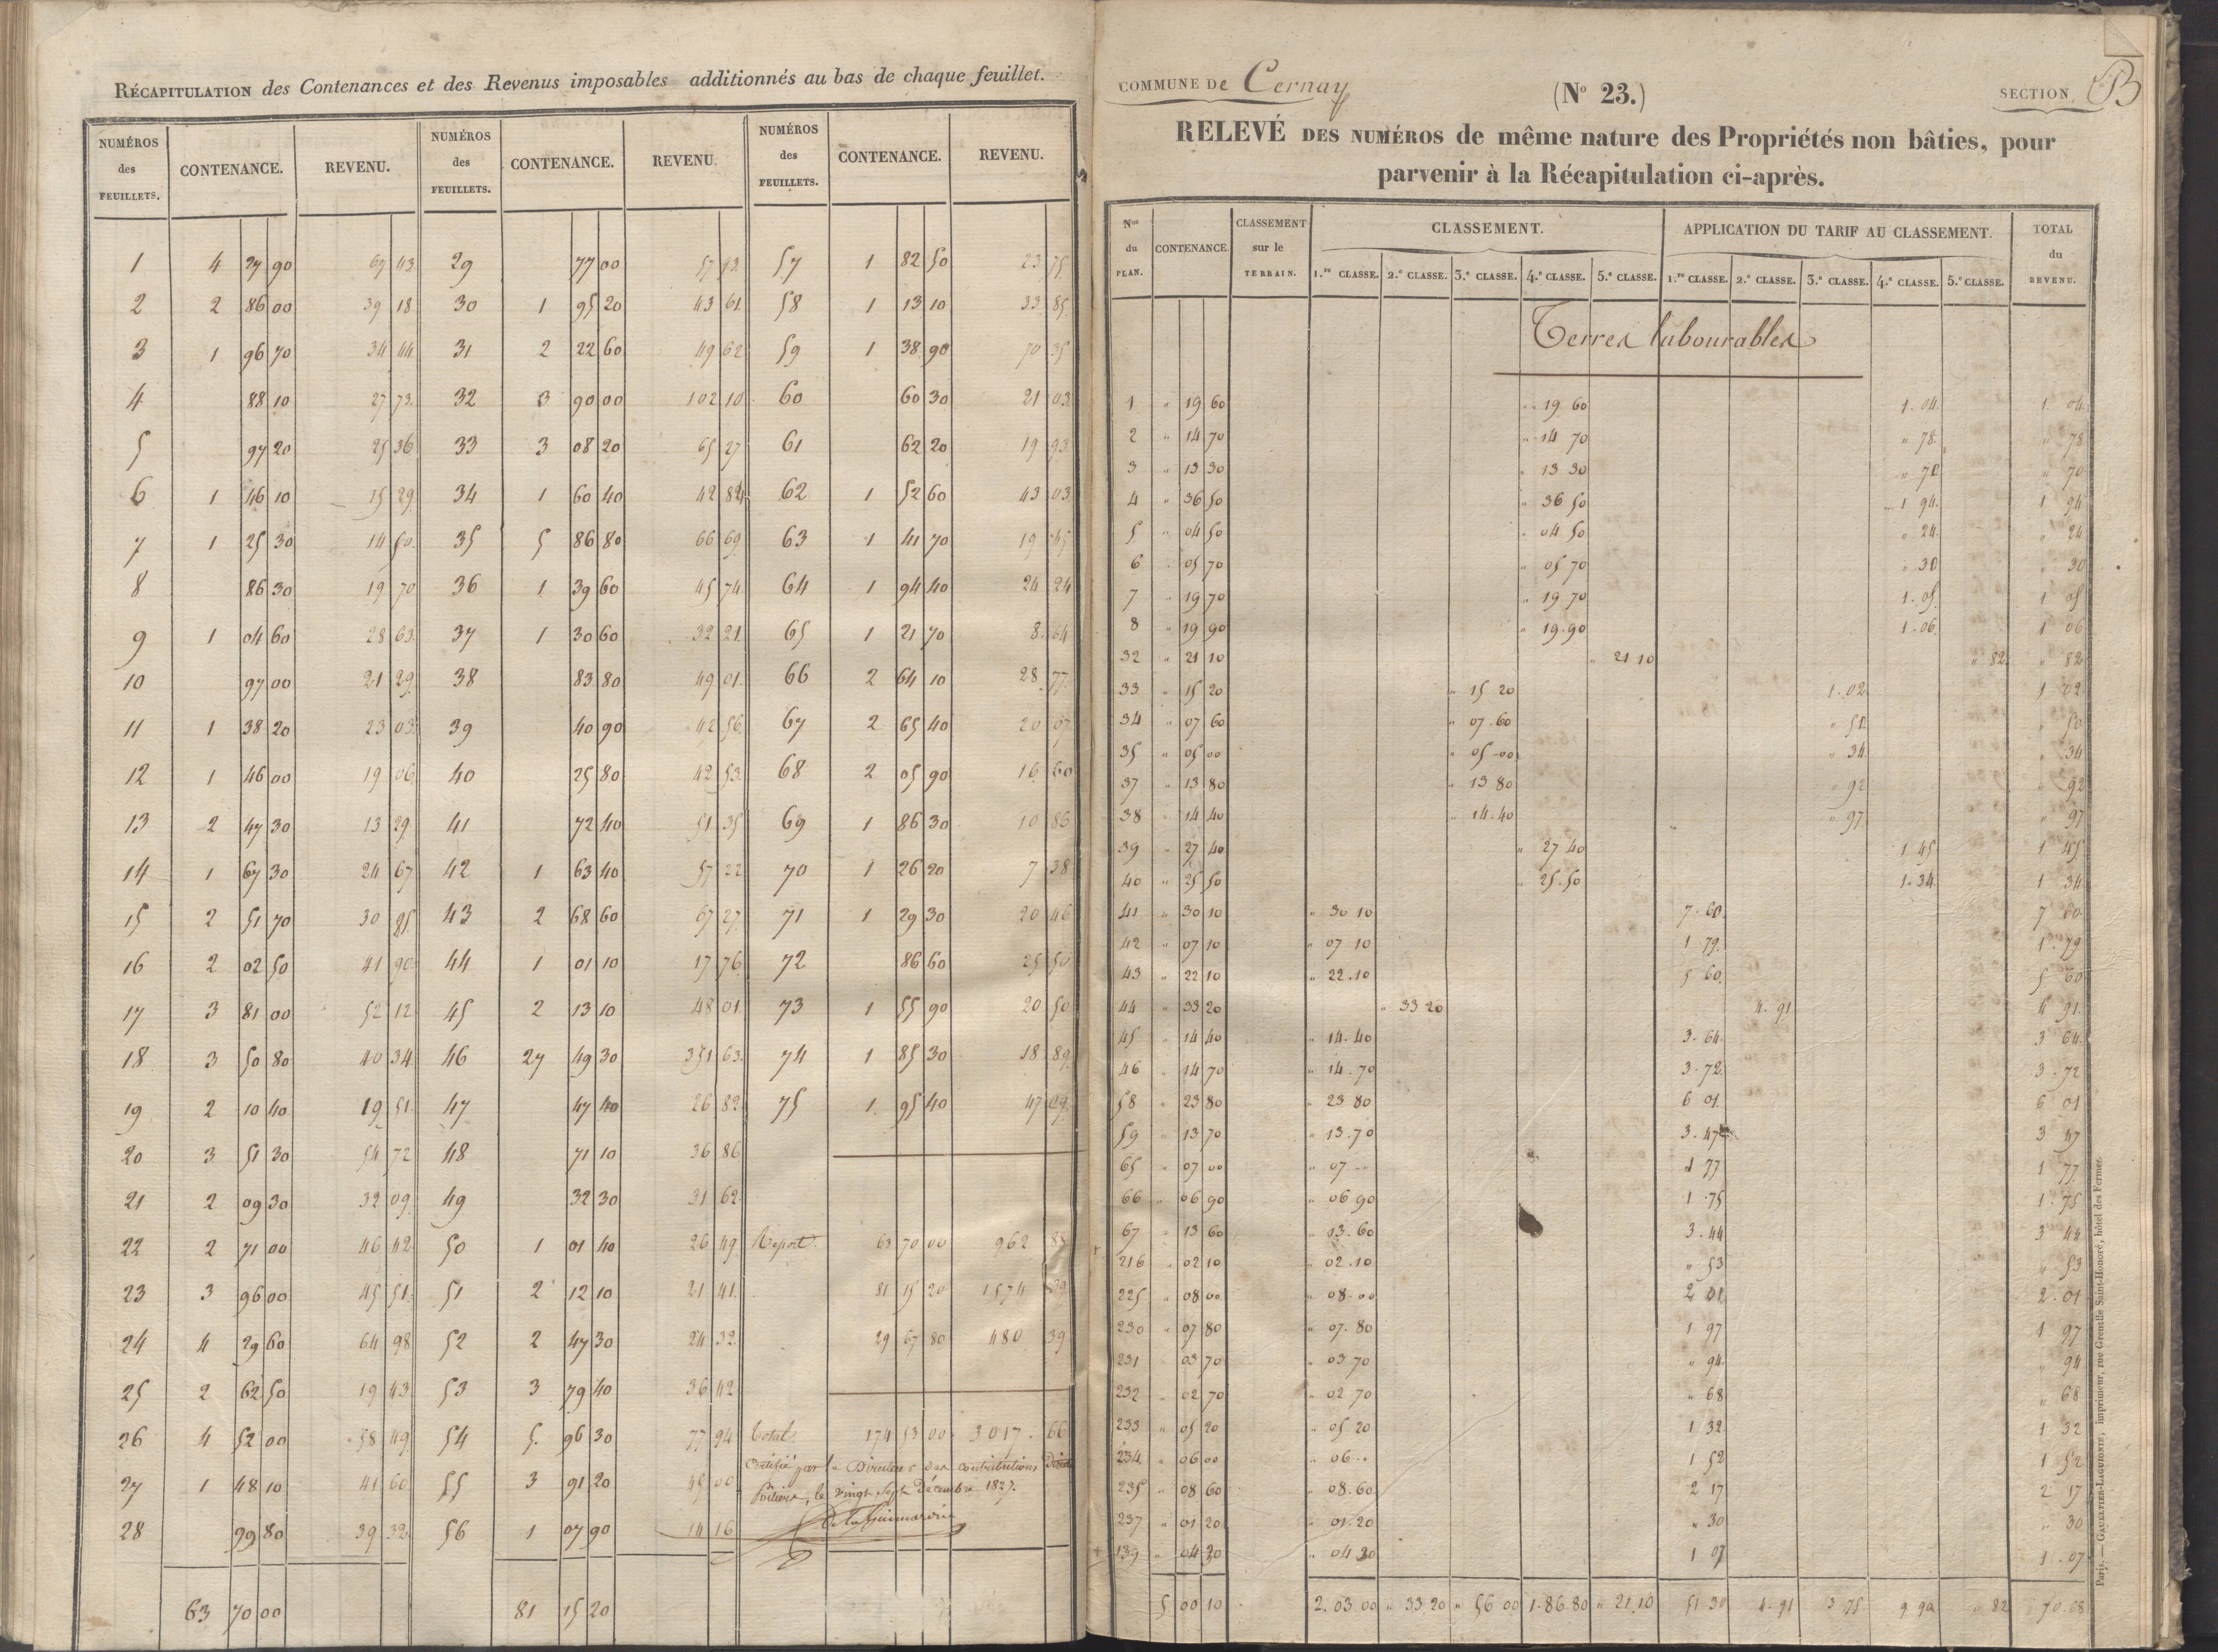 RÉCAPITULATION des Contenances et des Revenus imposables additionnés au bas de chaque feuillet.
NUMÉROS des FEUILLETS. CONTENANCE. REVENU. NUMÉROS des FEUILLETS. CONTENANCE. REVENU. NUMÉROS des FEUILLETS. CONTENANCE. REVENU.
1 4 27 90 69 43 29 77 00 57 93 57 1 82 50 23 75
2 2 86 00 39 18 30 1 95 20 43 61 58 1 13 10 33 85
3 1 96 70 34 44 31 2 22 60 49 62 59 1 38 90 70 35
4 88 10 27 73 32 3 90 00 102 10 60 60 30 21 03
5 97 20 25 36 33 3 08 20 65 27 61 62 20 19 93
6 1 46 10 15 29 34 1 60 40 42 84 62 1 52 60 43 03
7 1 25 30 14 50 35 5 86 80 66 69 63 1 41 70 19 45
8 86 30 19 70 36 1 39 60 45 74 64 1 94 40 24 24
9 1 04 60 28 63 37 1 30 60 32 21 65 1 21 70 8 64
10 97 00 21 29 38 83 80 49 01 66 2 64 10 28 77
11 1 38 20 23 03 39 40 90 42 56 67 2 65 40 20 07
12 1 46 00 19 06 40 25 80 42 53 68 2 05 90 16 60
13 2 47 30 13 29 41 72 40 51 35 69 1 86 30 10 86
14 1 67 30 24 67 42 1 63 40 57 22 70 1 26 20 7 38
15 2 51 70 30 85 43 2 68 60 67 27 71 1 29 30 20 46
16 2 02 50 41 90 44 1 01 10 17 76 72 86 60 25 50
17 3 81 00 52 12 45 2 13 10 48 01 73 1 55 90 20 50
18 3 50 80 40 34 46 27 49 30 351 63 74 1 85 30 18 89
19 2 10 40 19 51 47 47 40 26 82 75 1 95 40 47 29
20 3 51 30 54 72 48 71 10 36 86
21 2 09 30 32 09 49 32 30 31 62
22 2 71 00 46 42 50 1 01 40 26 49 Report 63 70 00 962 88
23 3 96 00 45 51 51 2 12 10 21 41 81 15 20 1574 39
24 4 29 60 64 98 52 2 47 30 24 32 29 67 80 480 39
25 2 62 50 19 43 53 3 79 40 36 42
26 4 52 00 58 49 54 5 96 30 77 94 Total 174 53 00 3017 66
27 1 48 10 41 60 55 3 91 20 45 00
28 99 80 39 32 56 1 07 90 14 16
Certifié par le Directeur des contributions Directes
Poitiers, le vingt sept Décembre 1827.
63 70 00 81 15 20
COMMUNE De Cernay (No 23.) SECTION B
RELEVÉ DES NUMÉROS de même nature des Propriétés non bâties, pour
parvenir à la Récapitulation ci-après.
Nos du PLAN. CONTENANCE. CLASSEMENT sur le TERRAIN. CLASSEMENT. APPLICATION DU TARIF AU CLASSEMENT. TOTAL du REVENU.
1.re CLASSE. 2.e CLASSE. 3.e CLASSE. 4.e CLASSE. 5.e CLASSE. 1.re CLASSE. 2.e CLASSE. 3.e CLASSE. 4.e CLASSE. 5.e CLASSE.
Terres labourables
1 " 19 60 " 19 60 1. 04 1 04
2 " 14 70 " 14 70 " 78 " 78
3 " 13 30 " 13 30 " 70 " 70
4 " 36 50 " 36 50 1 94 1 94
5 " 04 50 " 04 50 " 24 " 24
6 " 05 70 " 05 70 " 30 " 30
7 " 19 70 " 19 70 1. 05 1 05
8 " 19 90 " 19.90 1.06 1 06
32 " 21 10 " 21 10 " 82 " 82
33 " 15 20 " 15 20 1.02 1 02
34 " 07 60 " 07.60 " 51 " 50
35 " 05 00 " 05-00 " 34 " 34
37 " 13 80 " 13 80 " 92 " 92
38 " 14 40 " 14.40 " 97 " 97
39 " 27 40 " 27 40 1 45 1 45
40 " 25 50 " 25.50 1.34 1 34
41 " 30 10 " 30 10 7.60 7 60
42 " 07 10 " 07 10 1 79 1.79
43 " 22 10 " 22.10 5 60 5 60
44 " 33 20 " 33 20 4. 91 4 91
45 " 14 40 " 14.40 3.64 3 64
46 " 14 70 " 14.70 3.72 3.72
58 " 23 80 " 23 80 6 01 6 01
59 " 13 70 " 13.70 3.47 3 47
65 " 07 00 " 07 -- 1 77 1 77
66 " 06 90 " 06 90 1.75 1.75
67 " 13 60 " 13.60 3.44 3 44
216 " 02 10 " 02.10 " 53 " 53
225 " 08 00 " 08-00 2 01 2.01
230 " 07 80 " 07.80 1 97 1 97
231 " 03 70 " 03 70 " 94 " 94
232 " 02 70 " 02 70 " 68 " 68
233 " 05 20 " 05 20 1 32 1 32
234 " 06 00 " 06 .. 1 52 1 52
235 " 08 60 " 08.60 2 17 2 17
237 " 01 20 " 01.20 " 30 " 30
139 " 04 20 " 04 20 1 07 1.07
5 00 10 2.03.00 " 33.20 " 56 00 1.86.80 " 21.10 51 30 4.91 3 75 9 90 " 82 70.68
Paris. — GAULTIER-LAGUIONIE, imprimeur, rue Grenelle Saint-Honoré, hôtel des Fermes.